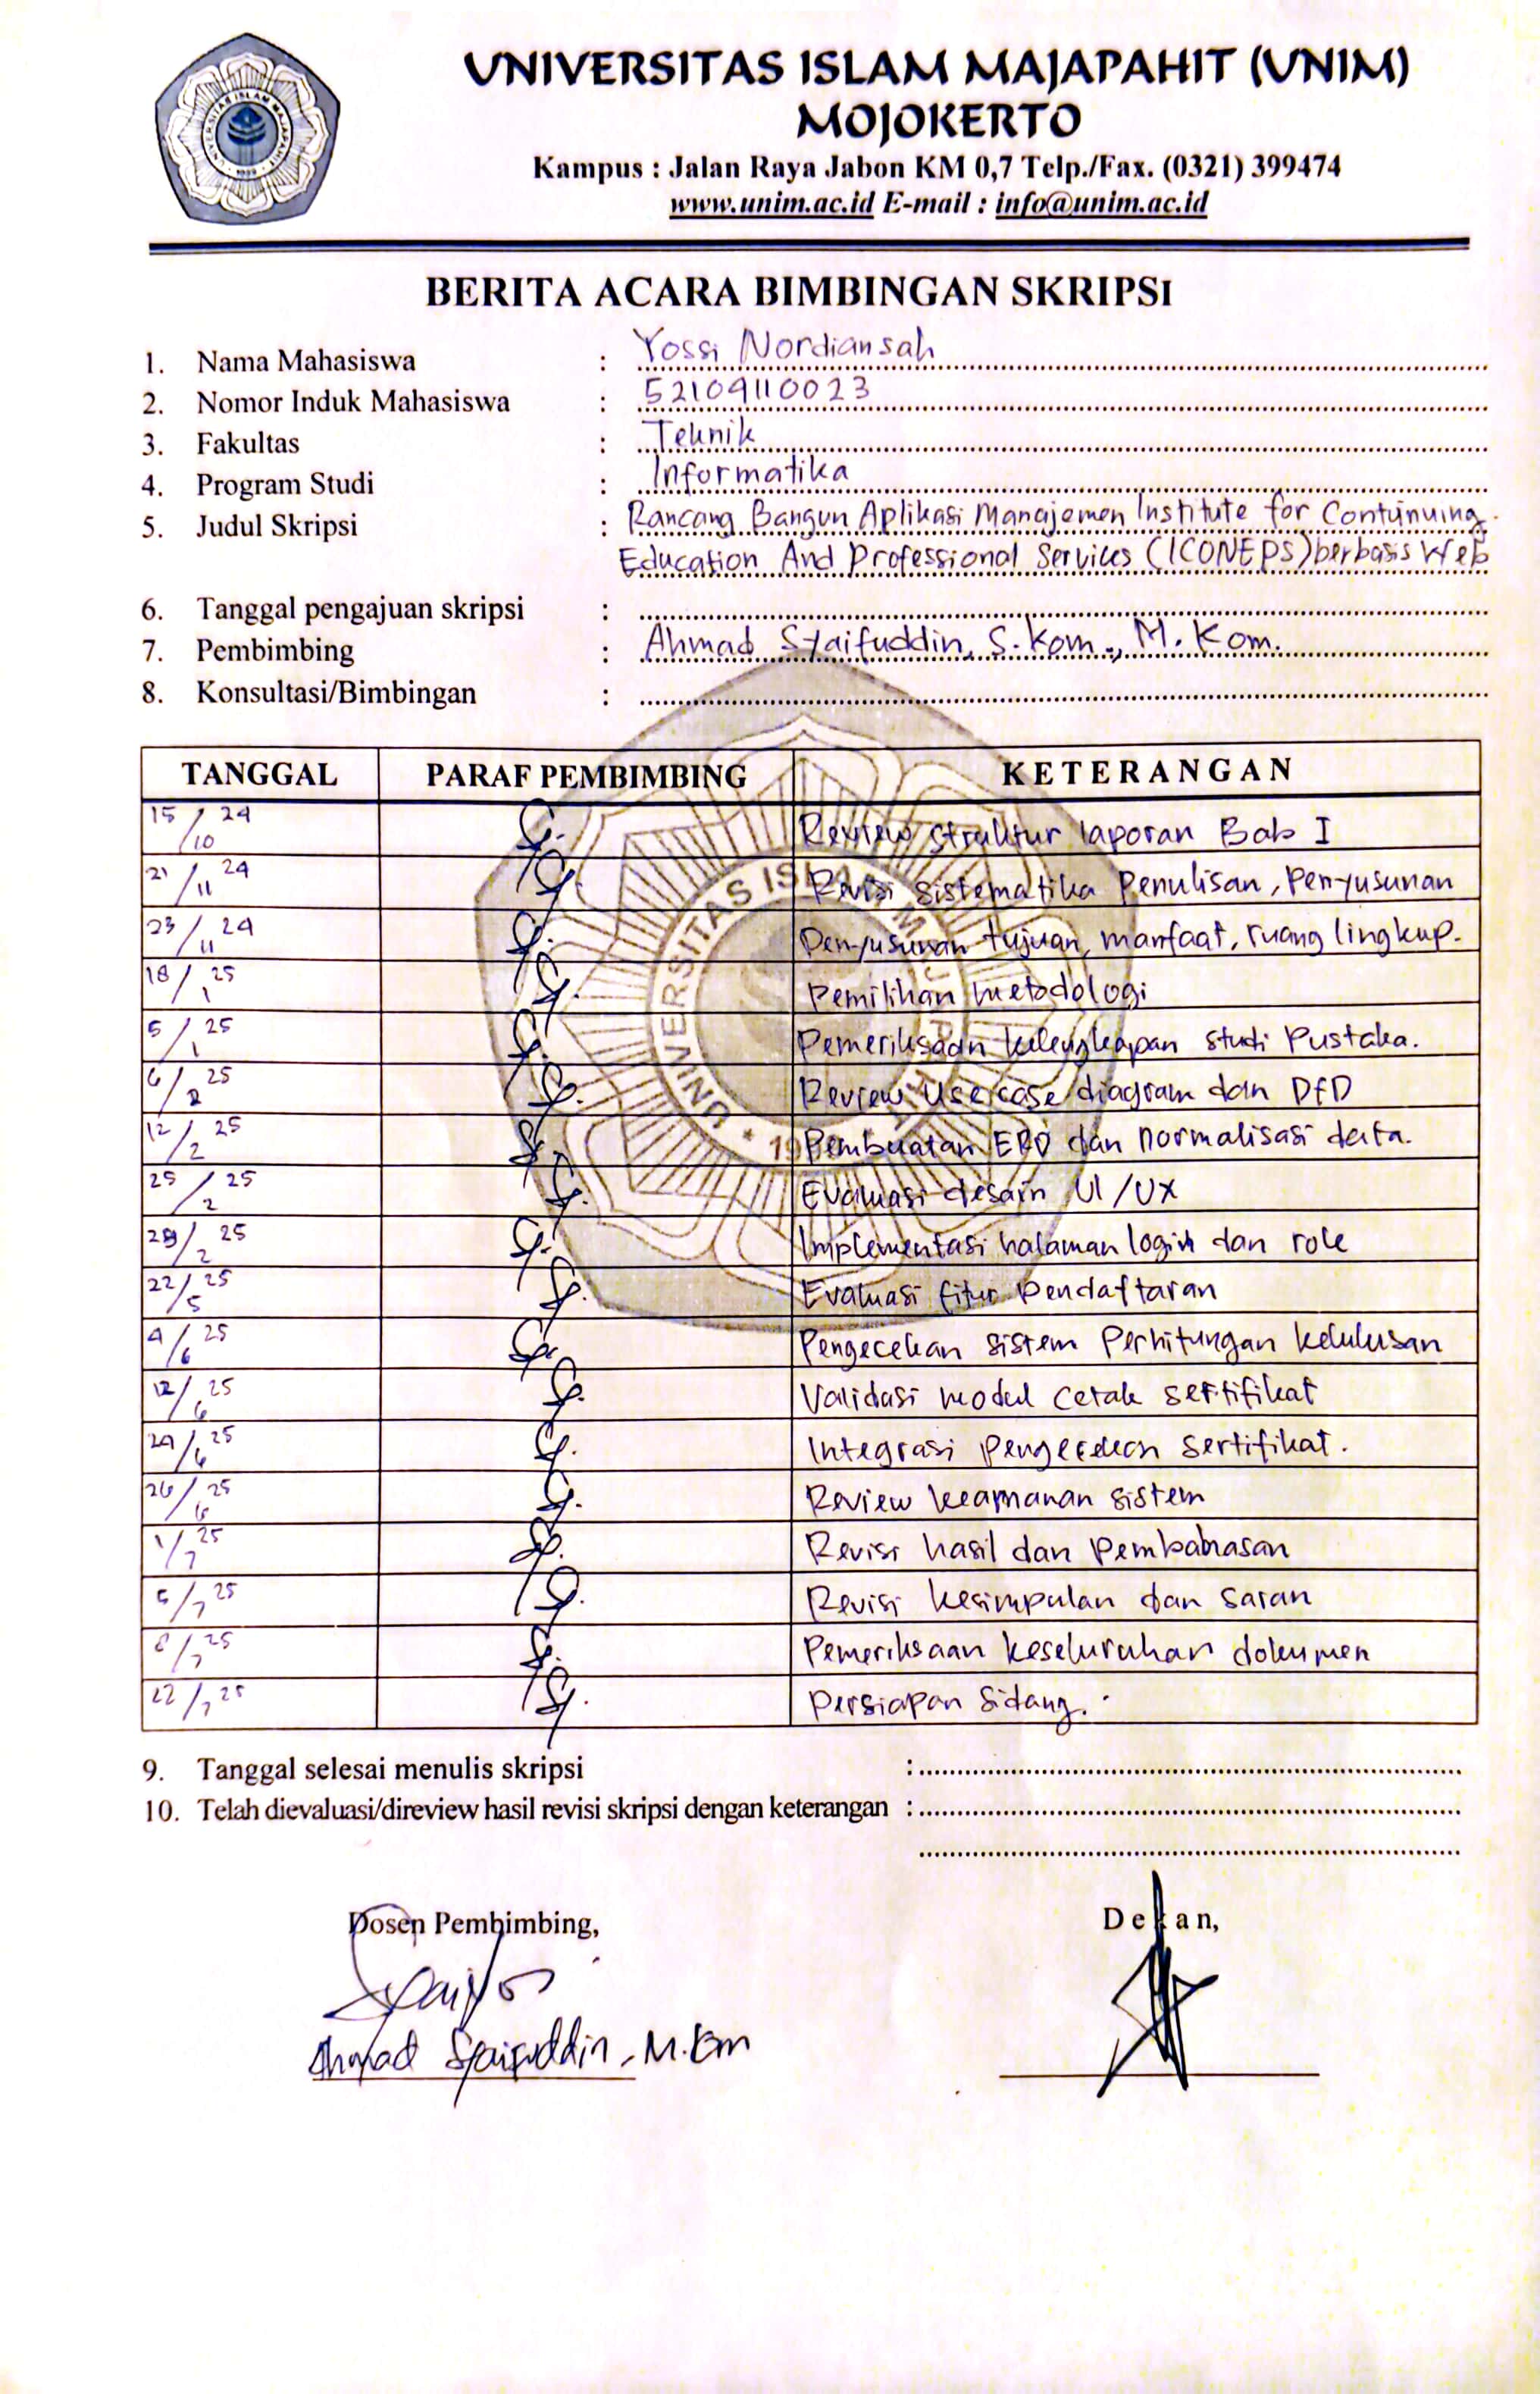 UNIVERSITAS ISLAM MAJAPAHIT (UNIM)
MOJOKERTO
Kampus : Jalan Raya Jabon KM 0,7 Telp./Fax. (0321) 399474
www.unim.ac.id E-mail : info@unim.ac.id
BERITA ACARA BIMBINGAN SKRIPSI
1. Nama Mahasiswa : Yossi Nordiansah
2. Nomor Induk Mahasiswa : 52109110023
3. Fakultas : Teknik
4. Program Studi : Informatika
5. Judul Skripsi : Rancang Bangun Aplikasi Manajemen Institute for Continuing
Education And Professional Services (ICONEPS) berbasis Web
6. Tanggal pengajuan skripsi :
7. Pembimbing : Ahmad Syaifuddin, S.Kom., M.Kom.
8. Konsultasi/Bimbingan :
TANGGAL PARAF PEMBIMBING KETERANGAN
15/10 24 Review struktur laporan Bab I
21/11 24 Revisi sistematika penulisan, penyusunan
23/11 24 Penyusunan tujuan, manfaat, ruang lingkup.
18/1 25 Pemilihan metodologi
5/1 25 Pemeriksaan kelengkapan studi Pustaka.
6/2 25 Review use case diagram dan DFD
12/2 25 Pembuatan ERD dan normalisasi data.
25/2 25 Evaluasi desain UI/UX
28/2 25 Implementasi halaman login dan role
22/5 25 Evaluasi fitur pendaftaran
4/6 25 Pengecekan sistem Perhitungan kelulusan
12/6 25 Validasi modul cetak sertifikat
24/6 25 Integrasi pengecekan sertifikat.
26/6 25 Review keamanan sistem
1/7 25 Revisi hasil dan Pembahasan
5/7 25 Revisi kesimpulan dan saran
8/7 25 Pemeriksaan keseluruhan dokumen
22/7 25 Persiapan Sidang.
9. Tanggal selesai menulis skripsi :
10. Telah dievaluasi/direview hasil revisi skripsi dengan keterangan :
Dosen Pembimbing, Dekan,
Ahmad Syaifuddin, M.Kom